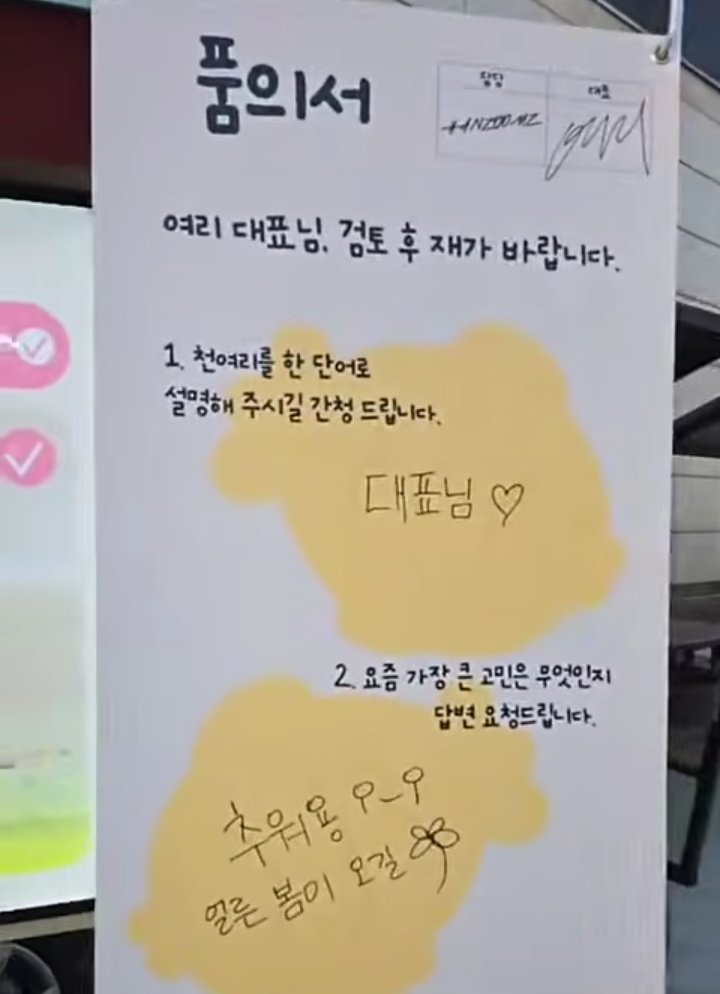 품의서
담당
대표
여리 대표님, 검토 후 재가 바랍니다.
1. 천여리를 한 단어로
설명해 주시길 간청 드립니다.
대표님 ♡
2. 요즘 가장 큰 고민은 무엇인지
답변 요청드립니다.
추워용 우_우
얼른 봄이 오길